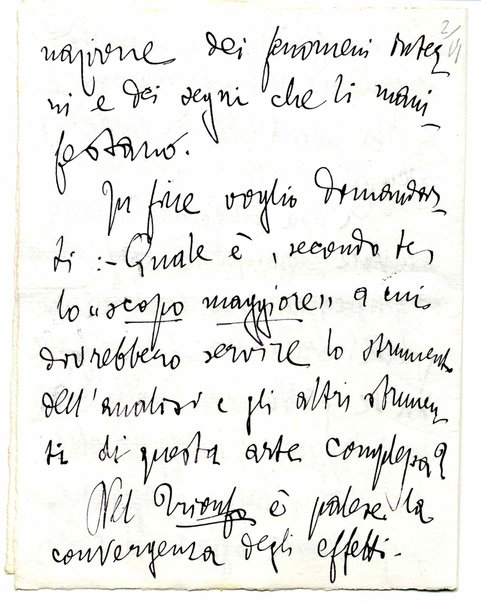 2/VI
nazione dei fenomeni inter
ni e dei segni che li mani
festano.
In fine voglio domandar-
ti :- Quale è, secondo te,
lo "scopo maggiore" a cui
dovrebbero servire lo strumento
dell'analisi e gli altri strumen
ti di questa arte complessa?
Nel Trionfo è palese la
convergenza degli effetti.